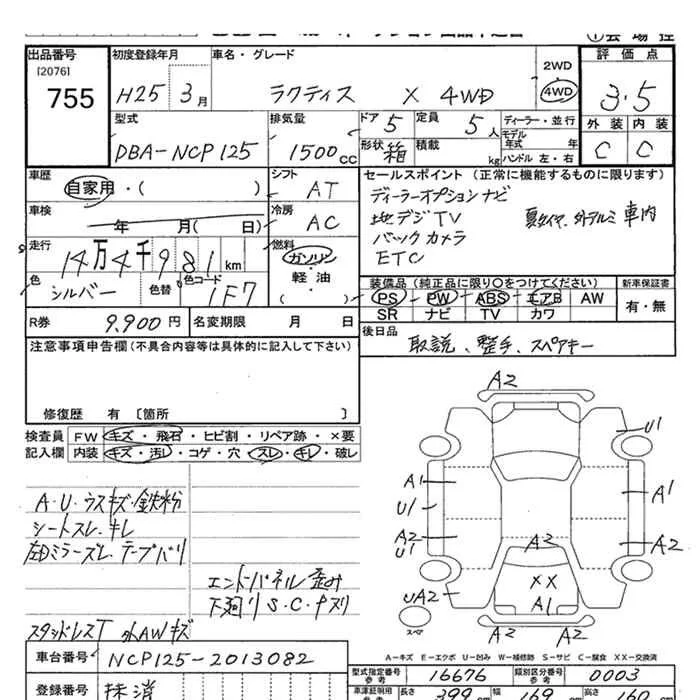 出品番号 初度登録年月 車名・グレード 2WD 評価点
[2076] 755 H25 3月 ラクティス X 4WD 4WD 3.5
型式 排気量 ドア 5 定員 5人 ディーラー・並行 外装 内装
DBA-NCP125 1500cc 形状 箱 積載 kg モデル年式 年 ハンドル 左・右 C C
車歴 シフト セールスポイント (正常に機能するものに限ります)
自家用・( ) AT ディーラーオプションナビ
車検 年 月( 日) 冷房 AC 地デジTV 夏タイヤ、外アルミ車内
走行 燃料 バックカメラ
14万4千981km ガソリン・軽油・( ) ETC
色 シルバー 色替 色コード 1F7 装備品 (純正品に限り○をつけてください) 新車保証書
PS PW ABS エアB AW 有・無
SR ナビ TV カワ
R券 9.900円 名変期限 月 日 後日品
取説、整手、スペアキー
注意事項申告欄(不具合内容等は具体的に記入して下さい)
修復歴 有 [箇所 ]
検査員 FW キズ・飛石・ヒビ割・リペア跡・×要
記入欄 内装 キズ・汚レ・コゲ・穴・スレ・キレ・破レ
A2
U1
A1 A1
U1
A2 U1 A2 A2
UA2 XX
A1
スペア A2 A2
A・U・ウスキズ・鉄粉
シートスレ、キレ
左Dミラースレ、テープバリ
エンドパネル歪み
下廻りS.C.キズリ
スタッドレスT 外AWキズ
A-キズ E-エクボ U-凹み W-補修跡 S-サビ C-腐食 XX-交換済
車台番号 NCP125-2013082
型式指定番号 16676 類別区分番号 0003
登録番号 抹消
車庫証明用参考 長さ 399cm 幅 169cm 高さ 160cm